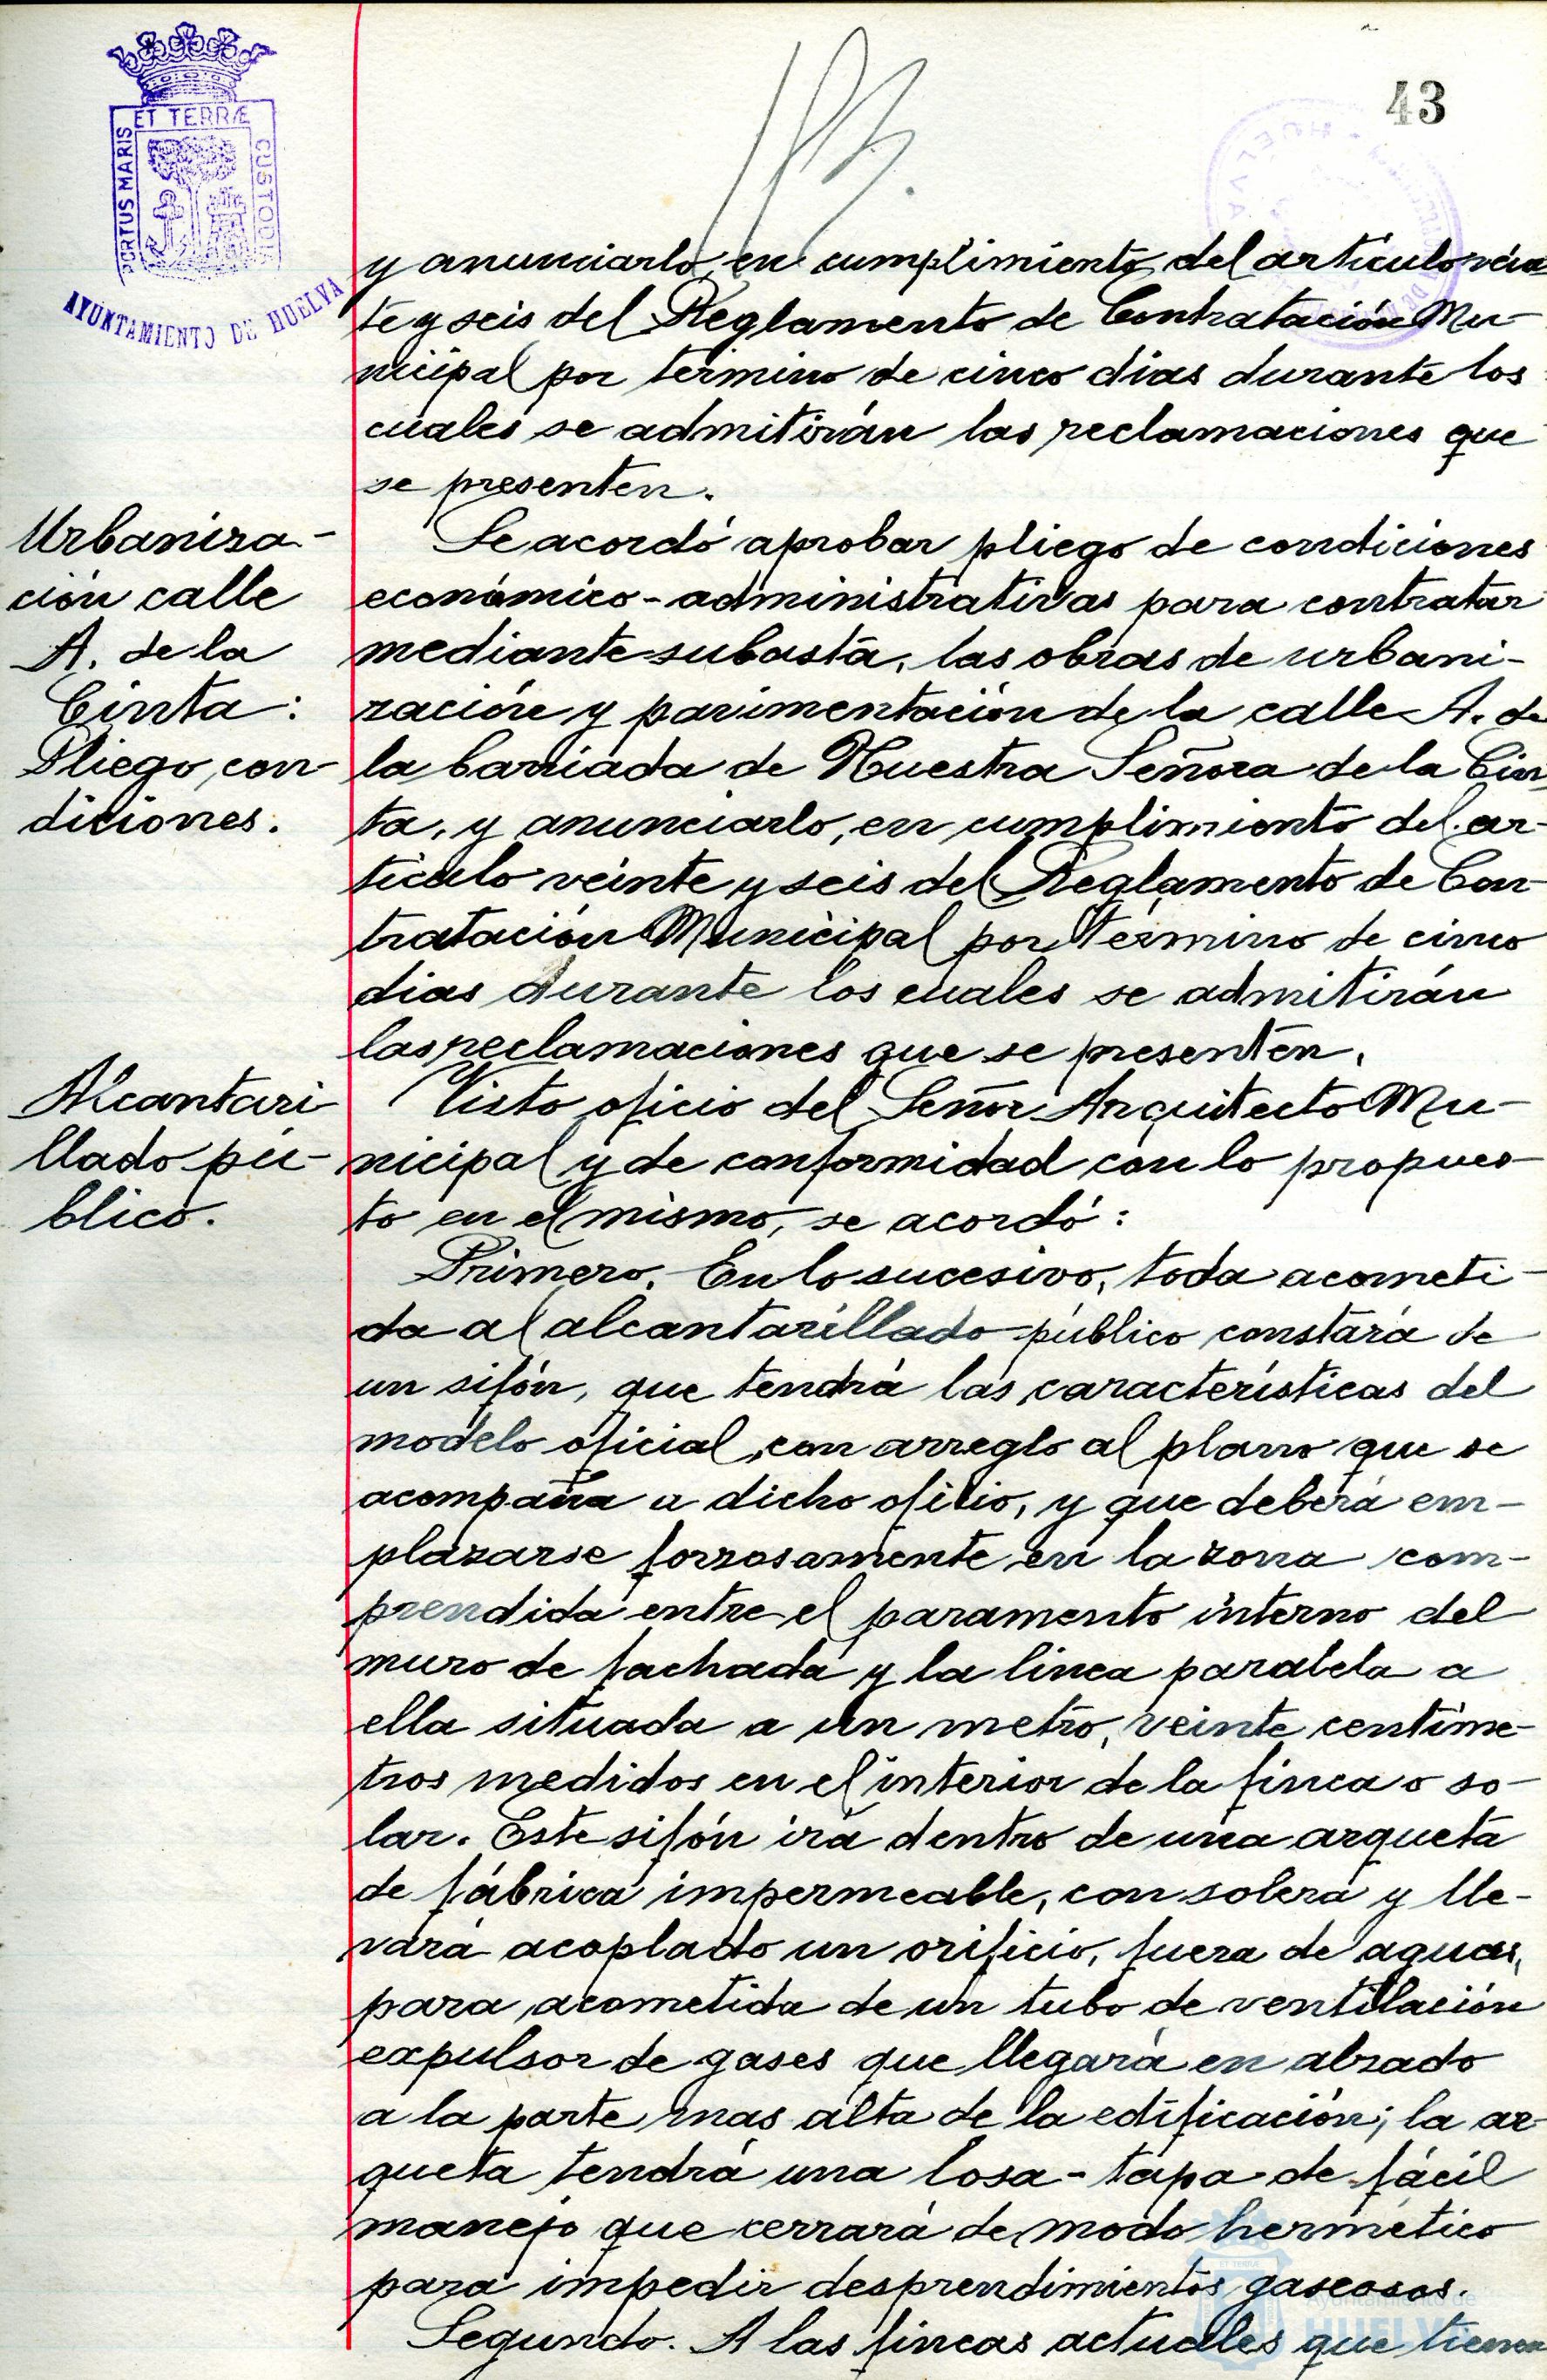 43
ET TERRÆ
PORTUS MARIS
CUSTODIA
AYUNTAMIENTO DE HUELVA
y anunciarlo, en cumplimiento del articulo vein
te y seis del Reglamento de Contratación Mu-
nicipal por termino de cinco dias durante los
cuales se admitirán las reclamaciones que
se presenten.
Urbaniza-
ción calle
A. de la
Cinta:
Pliego con-
diciones.
Se acordó aprobar pliego de condiciones
económico-administrativas para contratar
mediante subasta, las obras de urbani-
zación y pavimentación de la calle A. de
la barriada de Nuestra Señora de la Cin
ta, y anunciarlo, en cumplimiento del ar-
ticulo veinte y seis del Reglamento de Con-
tratación Municipal por término de cinco
dias durante los cuales se admitirán
las reclamaciones que se presenten.
Alcantari-
llado pú-
blico.
Visto oficio del Señor Arquitecto Mu-
nicipal y de conformidad con lo propues-
to en el mismo, se acordó:
Primero. En lo sucesivo, toda acometi-
da al alcantarillado público constará de
un sifón, que tendrá las características del
modelo oficial, con arreglo al plano que se
acompaña a dicho oficio, y que deberá em-
plazarse forzosamente en la zona com-
prendida entre el paramento interno del
muro de fachada y la linea paralela a
ella situada a un metro, veinte centíme-
tros medidos en el interior de la finca o so-
lar. Este sifón irá dentro de una arqueta
de fábrica impermeable, con solera y lle-
vará acoplado un orificio, fuera de aguas,
para acometida de un tubo de ventilación
expulsor de gases que llegará en alzado
a la parte mas alta de la edificación; la ar-
queta tendrá una losa-tapa de fácil
manejo que cerrará de modo hermético
para impedir desprendimientos gaseosos.
Segundo. A las fincas actuales que tienen
Ayuntamiento de
HUELVA